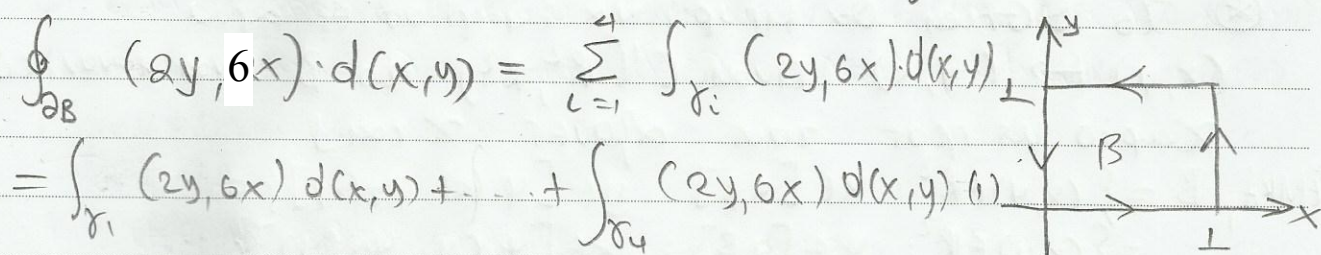 ∮_∂B (2y, 6x)·d(x,y) = Σ_{i=1}^{4} ∫_γi (2y, 6x)·d(x,y)
= ∫_γ1 (2y, 6x) d(x,y) + . . . + ∫_γ4 (2y, 6x) d(x,y) (1)
y
1
B
x
1